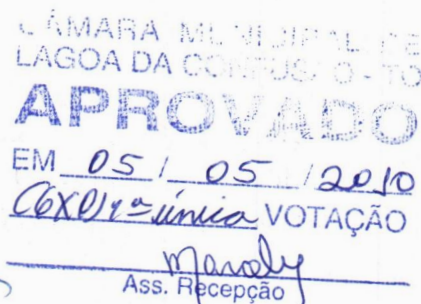 CÂMARA MUNICIPAL DE
LAGOA DA CONFUSÃO - TO
APROVADO
EM 05 / 05 / 2010
(6X0) 1ª única VOTAÇÃO
Ass. Recepção